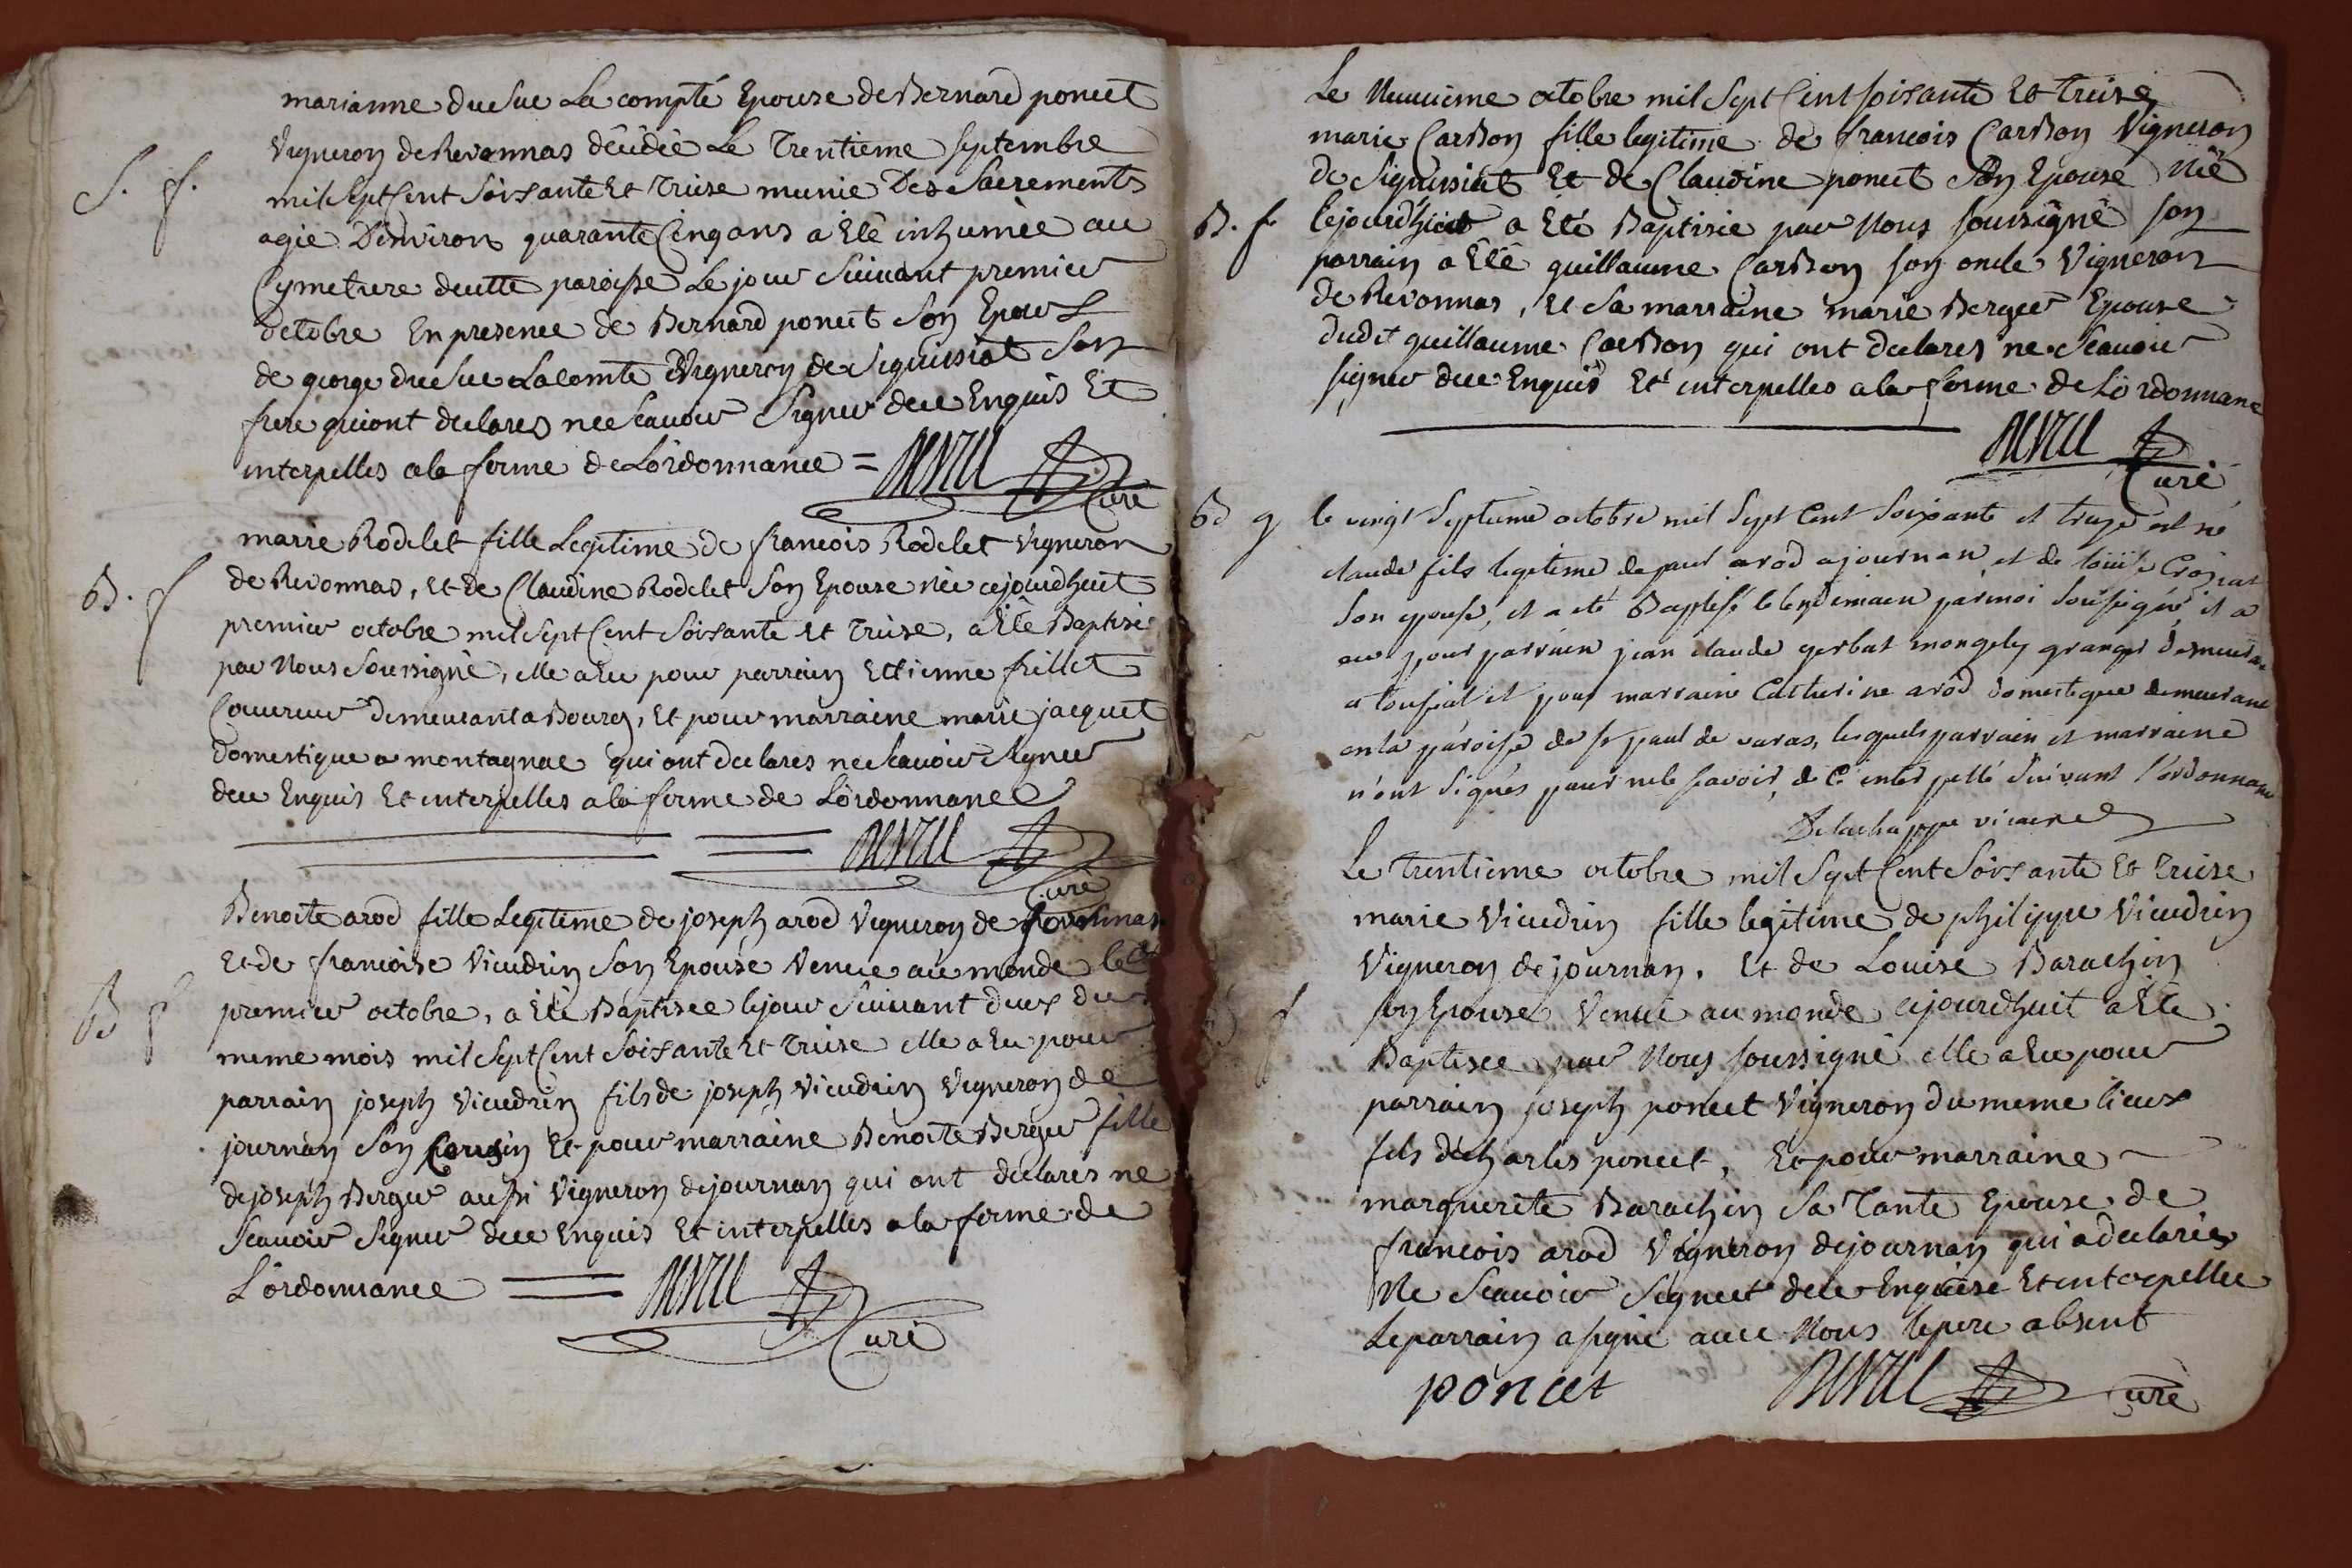 marianne du Suc La compte Epouse de Bernard poncet
Vigneron de Revonnas décédée Le Trentieme septembre
S. f.
mil Sept Cent Soisante Et Treise munie Des Sacrements
agée D'environ quarante Cinq ans a Eté inhumée au
Cymetiere de cette paroisse Le jour Suivant premier
octobre En presence de Bernard poncet Son Epoux
de george du Suc Lacomte Vigneron de Seguissiat Son
frere qui ont declares ne Scavoir Signer de ce Enquis Et
interpelles a la forme de Lordonnance =
Curé
marie Rodelet fille Legitime de francois Rodelet Vigneron
B. f
de Revonnas, et de Claudine Rodelet Son Epouse née cejourdhuit
premier octobre mil Sept Cent Soisante et Treise, a Eté Baptisé
par Nous Soussigné, elle a Eu pour parrain Ettienne frillet
Couvreur demeurant a Bourg, Et pour marraine marie jacquet
domestique a montagnac qui ont declares ne Scavoir Signer
de ce Enquis Et interpelles a la forme de Lordonnance
Curé
Benoite arod fille Legitime de joseph arod Vigneron de Revonnas
Et de francoise Vieudrin Son Epouse Venue au monde le
B f
premier octobre, a Eté Baptisee le jour Suivant deux du
meme mois mil Sept Cent Soisante Et Treise elle a Eu pour
parrain joseph Vieudrin fils de joseph Vieudrin Vigneron de
journan Son Cousin Et pour marraine Benoite Berger fille
de joseph Berger aussi Vigneron de journan qui ont declares ne
Scavoir Signer de ce Enquis Et interpelles a la forme de
Lordonnance
Curé
Le Neuvieme octobre mil Sept Cent soisante Et Treise
marie Cardon fille legitime de francois Cardon Vigneron
de Seguissiat Et de Claudine poncet Son Epouse Née
B. f
cejourdhuit a Eté Baptisée par Nous soussigné son
parrain a Eté guillaume Cardon son oncle Vigneron
de Revonnas, et Sa marraine marie Berger Epouse
dudit guillaume Cardon qui ont declares ne Scavoir
signer de ce Enquis Et interpelles a la forme de Lordonnance
Curé
B g
le vingt Septieme octobre mil Sept Cent Soixante et treize est né
claude fils legitime de paul arod a journan et de louise
Son epouse, et a eté Baptisé le lendemain par moi Soussigné, il a
eu pour parrain jean claude gerbat granger demeurant
a et pour marraine Catherine arod domestique demeurant
en la paroise de st paul de varas, lesquels parrain et marraine
n'ont Signés pour ne le savoir, de ce interpellé Suivant l'ordonnance
Delachappe vicaire
Le Trentieme octobre mil Sept Cent Soisante Et Treise
marie Vieudrin fille legitime de philippe Vieudrin
Vigneron de journan. Et de Louise Barachin
f
son Epouse Venue au monde cejourdhuit a Eté
Baptisee par Nous soussigné elle a Eu pour
parrain joseph poncet Vigneron du meme lieux
fils de charles poncet, Et pour marraine
marguerite Barachin Sa Tante Epouse de
francois arod Vigneron de journan qui a declarée
Ne Scavoir Signer de ce Enquise Et interpellee
Le parrain a signé avec Nous le pere absent
poncet
Curé